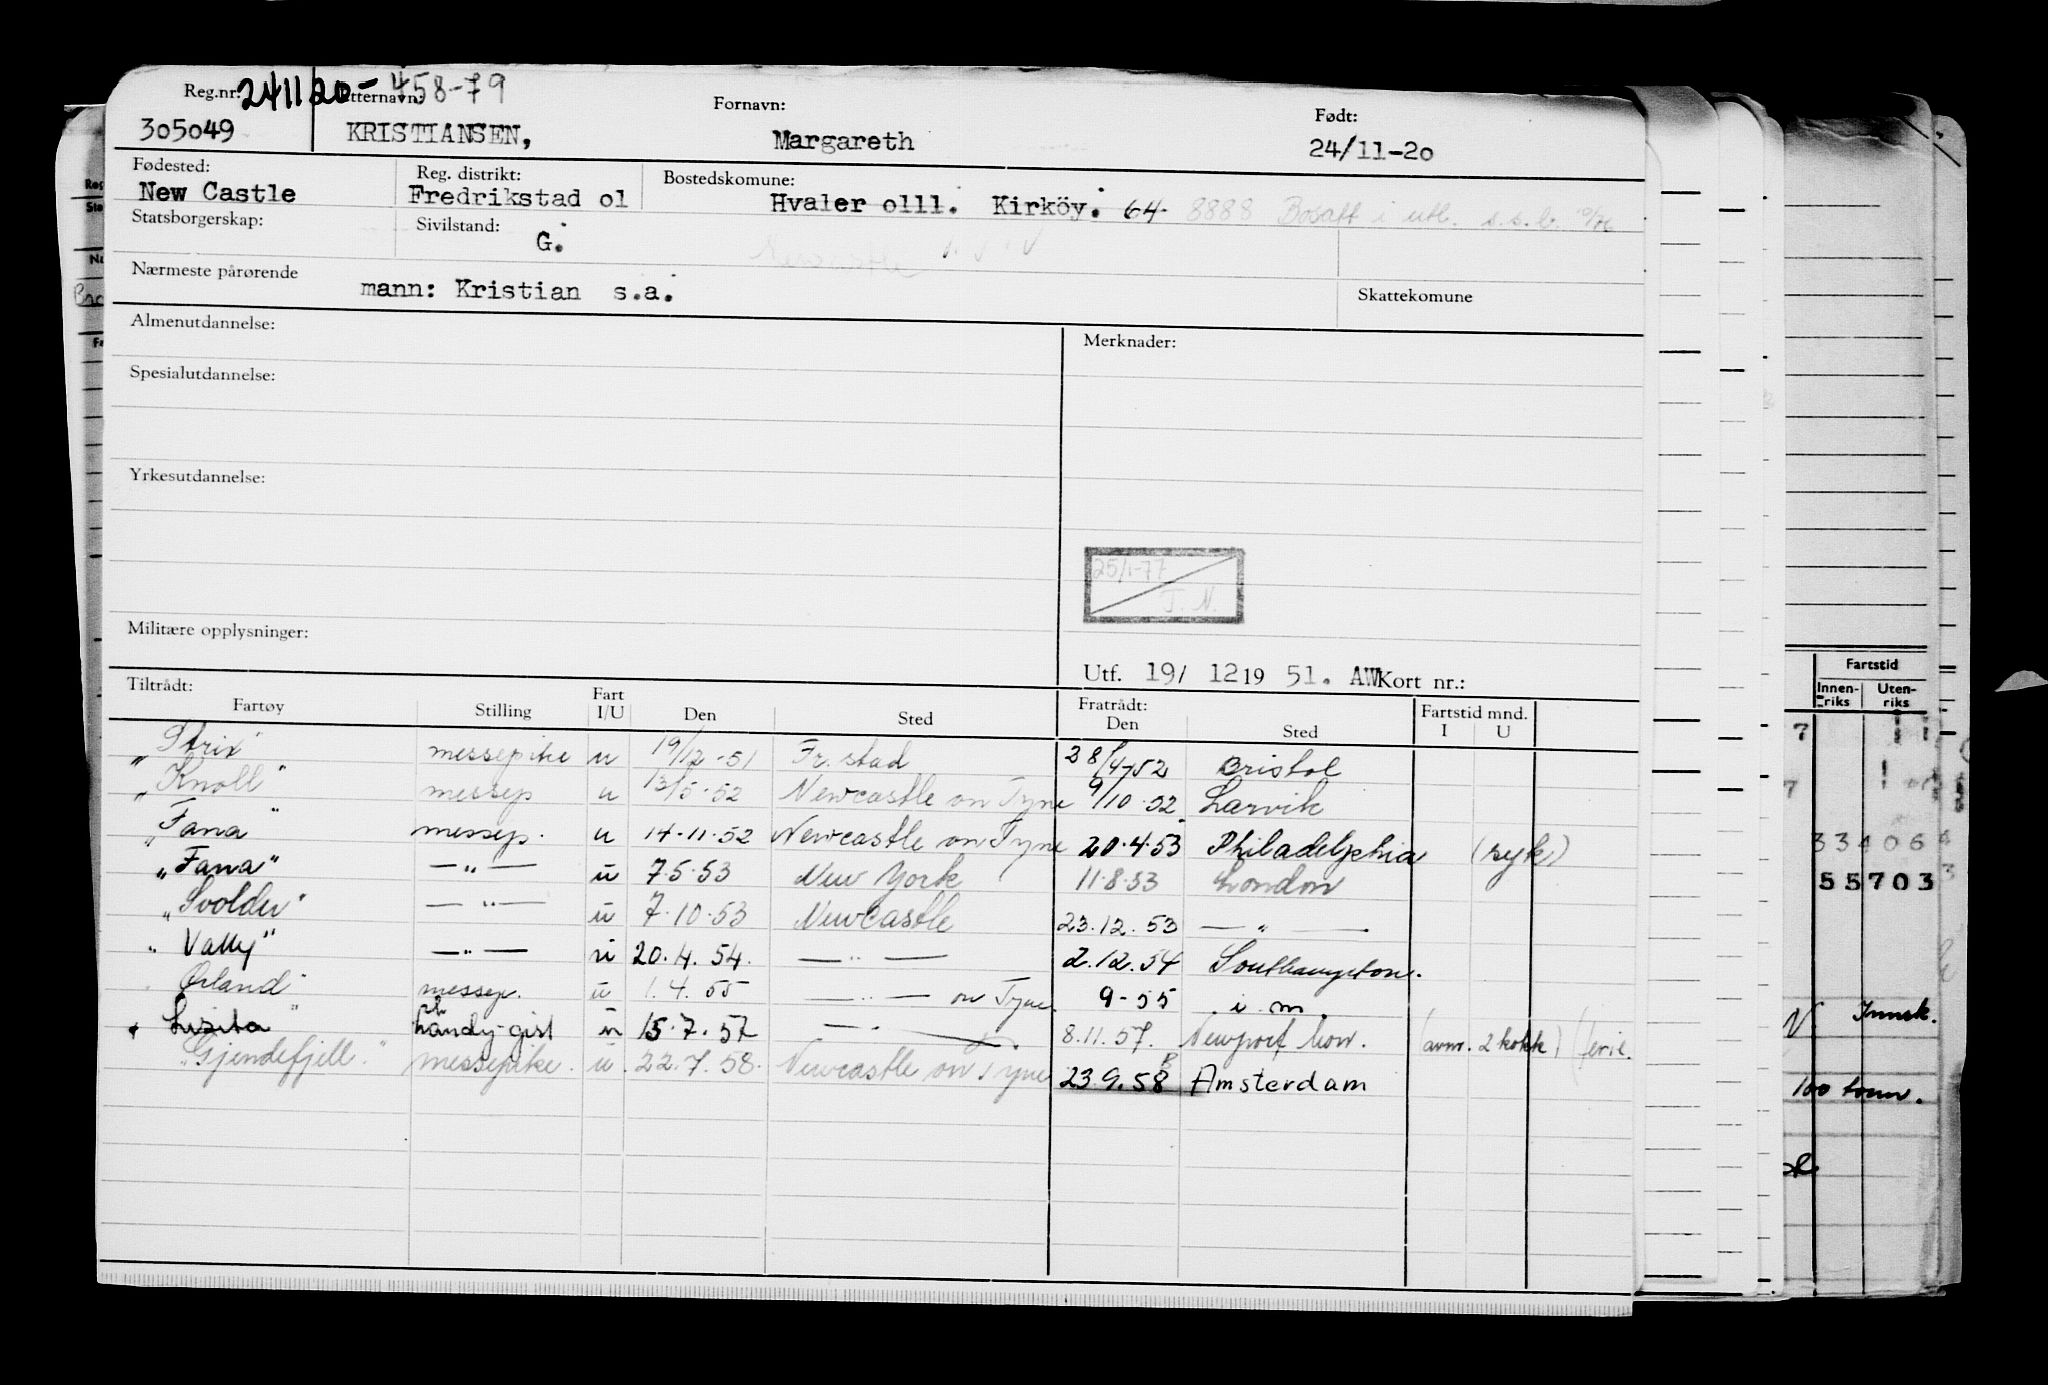 Reg.nr. 241120-45879 Etternavn: Fornavn: Født:
305049 KRISTIANSEN, Margareth 24/11-20
Fødested: Reg. distrikt: Bostedskomune:
New Castle Fredrikstad ol Hvaler olll. Kirköy. 64- 8888 Bosatt i utl. s.s.b.
Statsborgerskap: Sivilstand: G. Newcastle
Nærmeste pårørende mann: Kristian s.a. Skattekomune
Almenutdannelse: Merknader:
Spesialutdannelse:
Yrkesutdannelse:
25/1-77
T. N.
Militære opplysninger:
Utf. 19/ 12 19 51. AW Kort nr.:
Tiltrådt: Fratrådt:
Fartøy Stilling Fart I/U Den Sted Den Sted Fartstid mnd. I U
"Strix" messepike u 19/12-51 Fr.stad 28/4-52 Bristol
"Knoll" messep u 13/5-52 Newcastle on Tyne 9/10-52 Larvik
"Fana" messep. u 14-11-52 Newcastle on Tyne 20.4.53 Philadelphia (syk)
"Fana" — " — u 7.5.53 New York 11.8.53 London
"Svolder" — " — u 7.10.53 Newcastle 23.12.53 — " —
"Vally" — " — u 20.4.54. — " — 2.12.54 Southampton.
"Ørland" messep. u 1.4.55 — " — on Tyne. 9-55 i.m.
"Lisita" handy-gist u 15.7.57 — " — 8.11.57. Newport Mon. (avm. 2 kokk) (ferie.
"Gjendefjell." messepike. u. 22.7.58. Newcastle on Tyne 23.9.58 Amsterdam
Fartstid
Innen-riks Uten-riks
7
7
33406
55703
N. Innsk.
100 tonn.